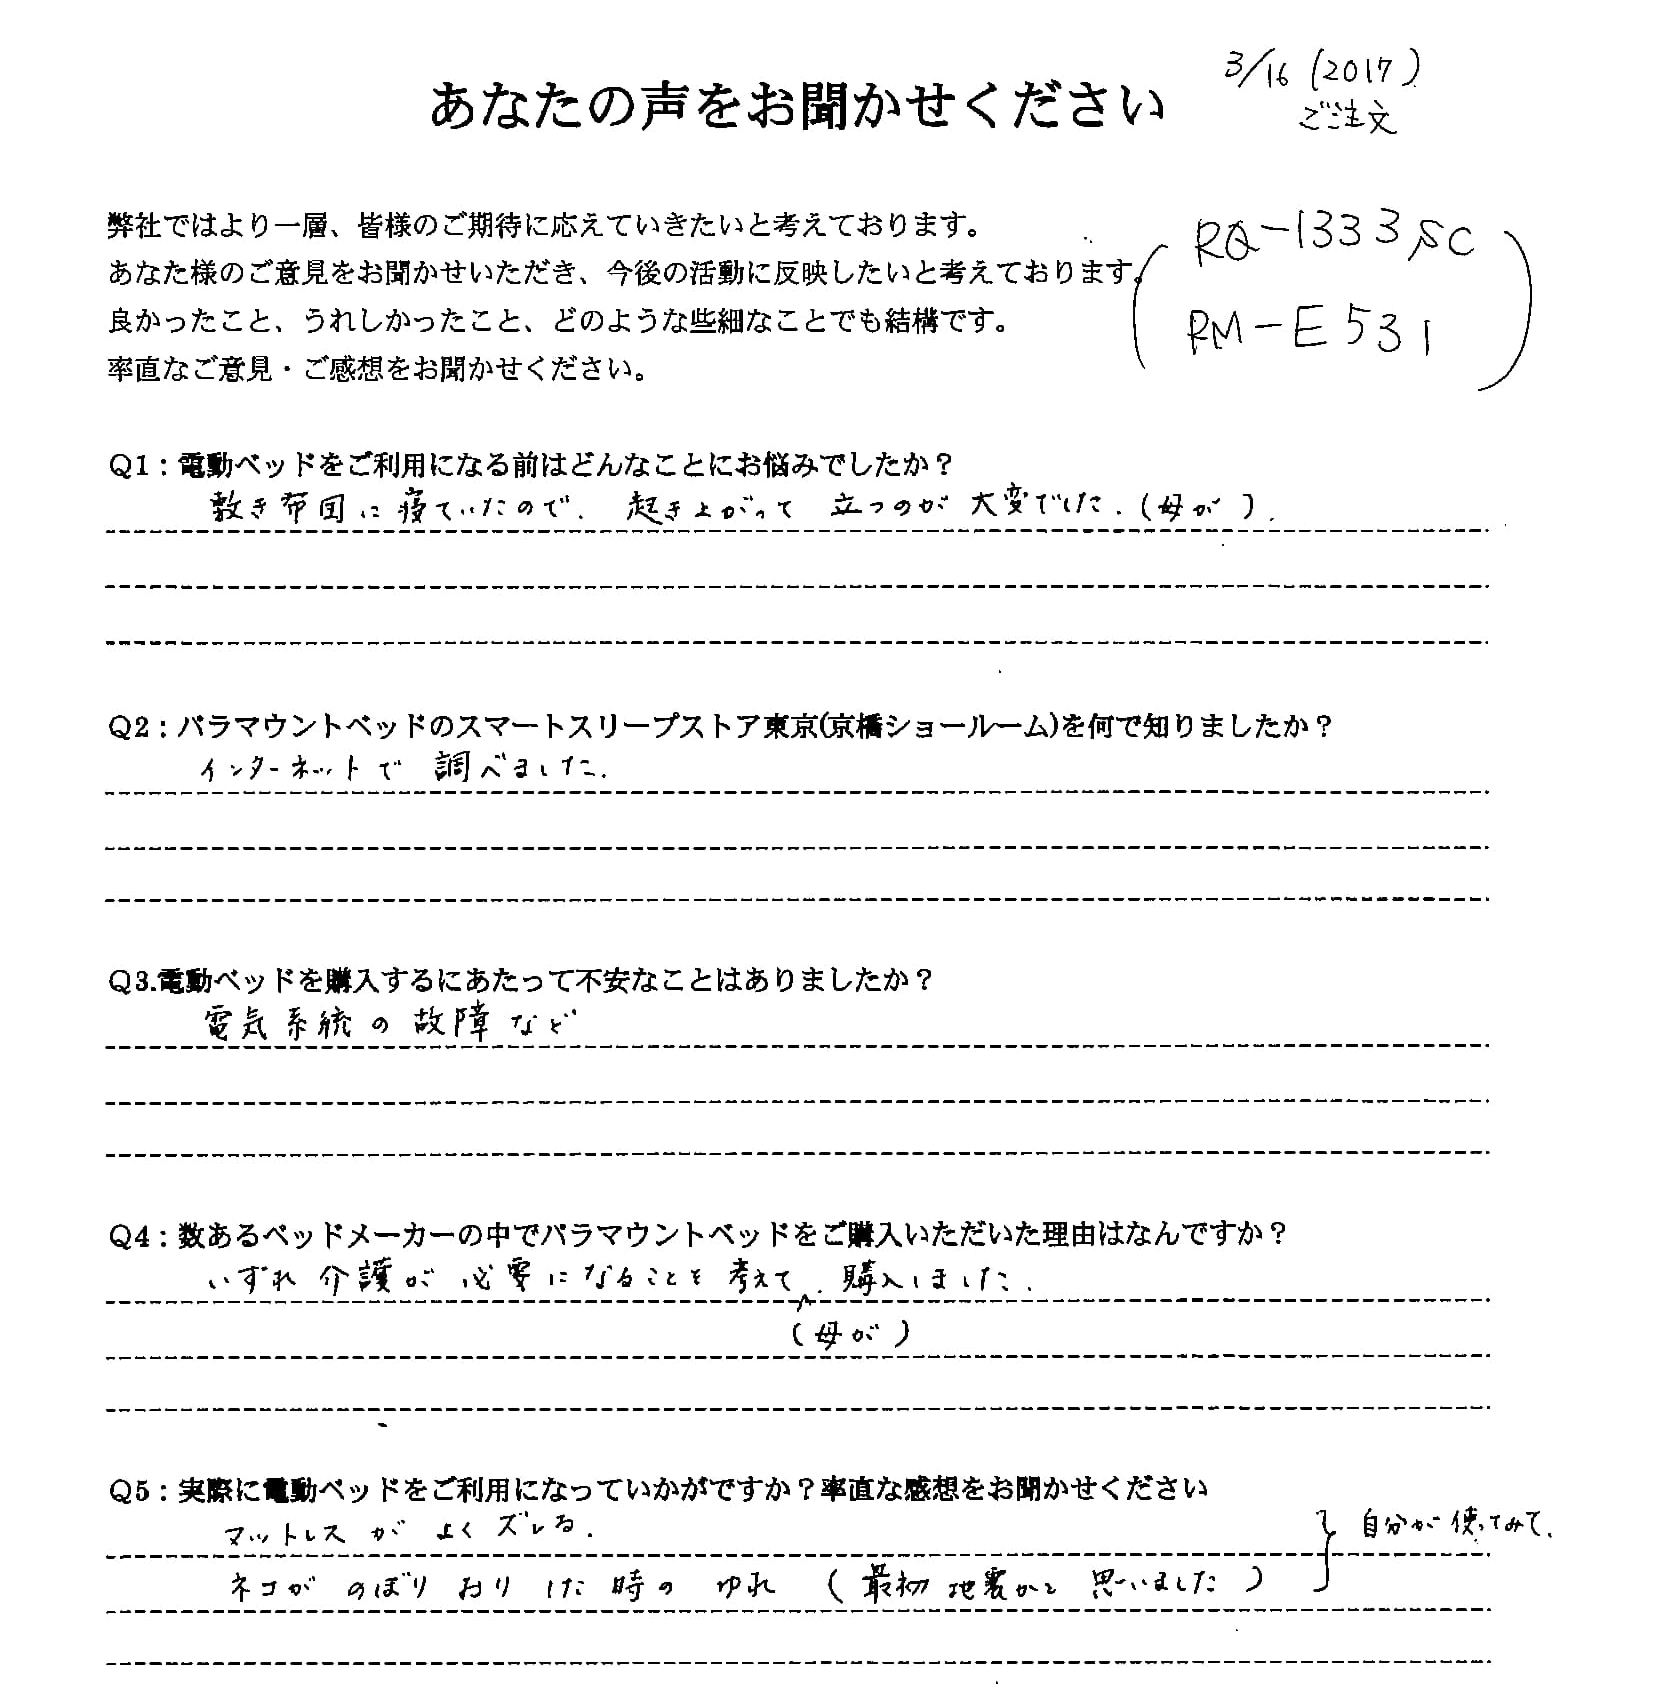 あなたの声をお聞かせください
3/16 (2017)
ご注文
弊社ではより一層、皆様のご期待に応えていきたいと考えております。
あなた様のご意見をお聞かせいただき、今後の活動に反映したいと考えております。
良かったこと、うれしかったこと、どのような些細なことでも結構です。
率直なご意見・ご感想をお聞かせください。
(RQ-1333SC
RM-E531)
Q1：電動ベッドをご利用になる前はどんなことにお悩みでしたか？
敷き布団に寝ていたので、起き上がって立つのが大変でした。(母が)。
Q2：パラマウントベッドのスマートスリープストア東京(京橋ショールーム)を何で知りましたか？
インターネットで調べました。
Q3.電動ベッドを購入するにあたって不安なことはありましたか？
電気系統の故障など
Q4：数あるベッドメーカーの中でパラマウントベッドをご購入いただいた理由はなんですか？
いずれ介護が必要になることを考えて、購入しました。
(母が)
Q5：実際に電動ベッドをご利用になっていかがですか？率直な感想をお聞かせください
マットレスがよくズレる。
ネコがのぼりおりした時のゆれ (最初地震かと思いました)
自分が使ってみて、